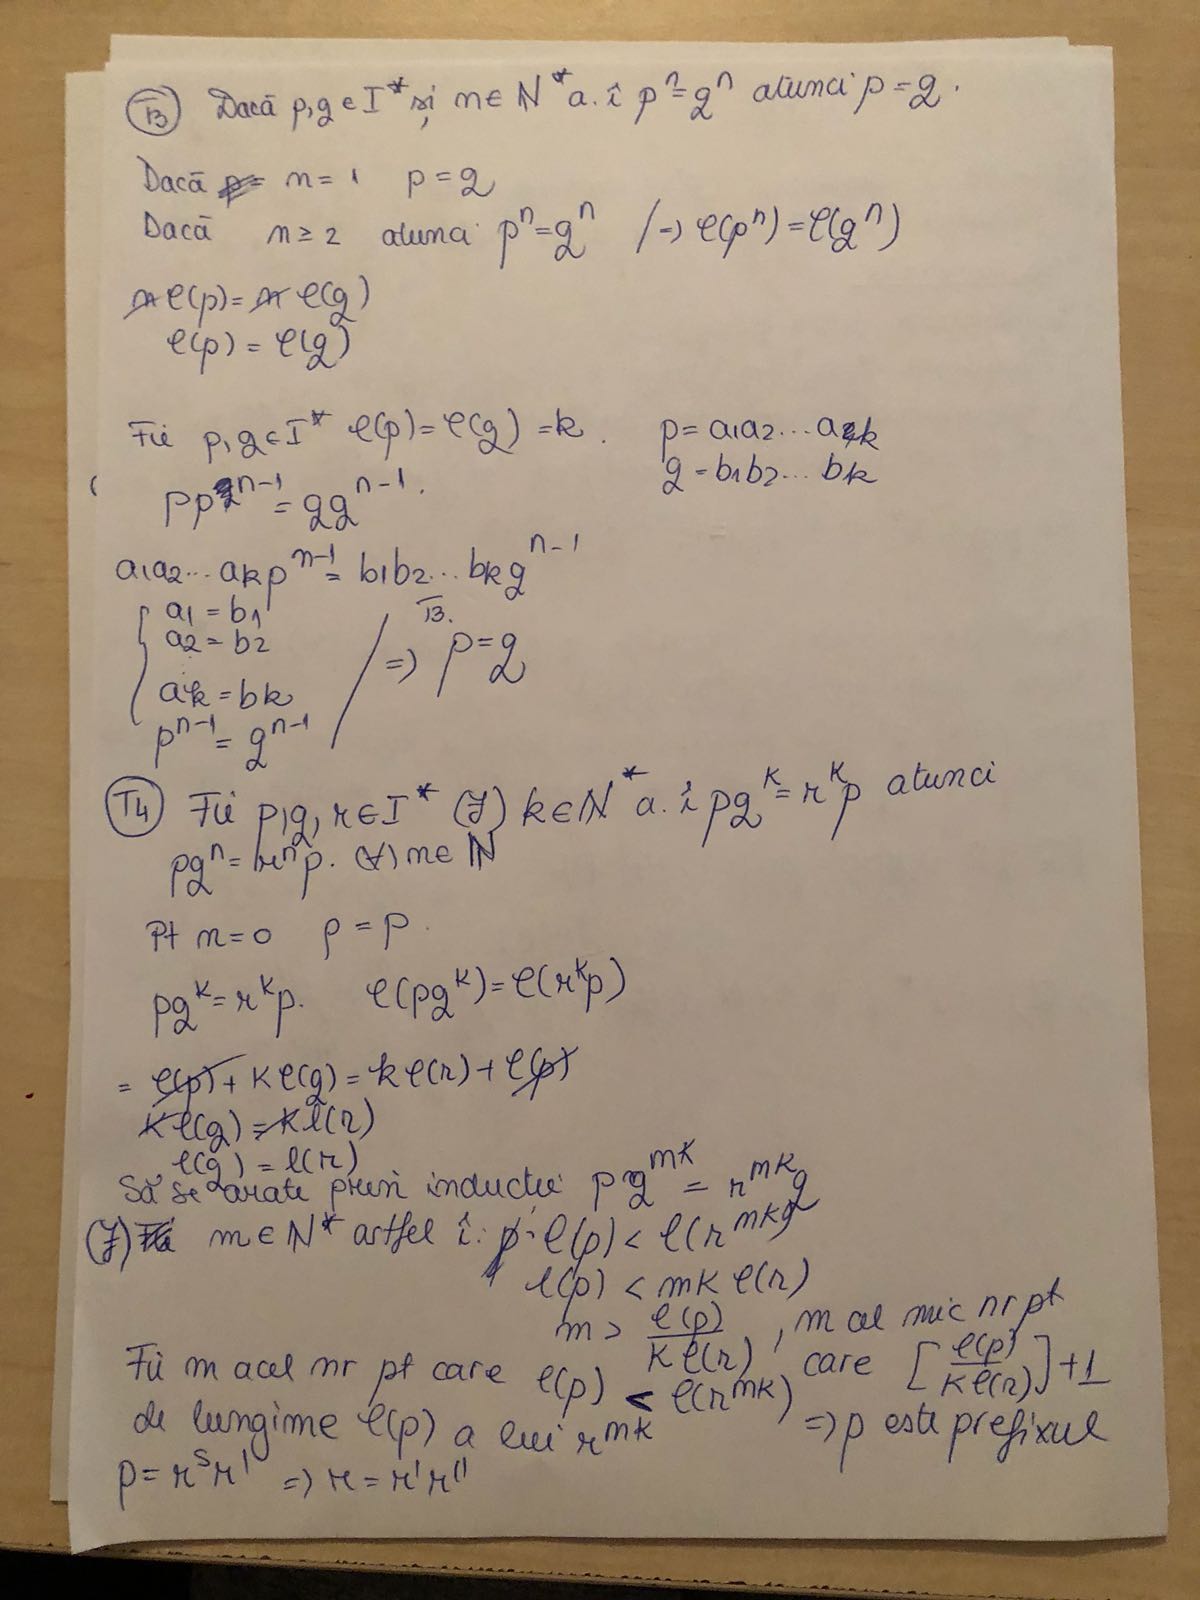 T3 Dacă p,q ∈ I* și n ∈ N* a. î pⁿ = qⁿ atunci p = q.
Dacă n = 1 p = q
Dacă n ≥ 2 atunci pⁿ = qⁿ /=> l(pⁿ) = l(qⁿ)
n l(p) = n l(q)
l(p) = l(q)
Fie p,q ∈ I* l(p) = l(q) = k. p = a1a2...ak
q = b1b2...bk
ppⁿ⁻¹ = qqⁿ⁻¹.
a1a2...ak pⁿ⁻¹ = b1b2...bk qⁿ⁻¹
a1 = b1 T3.
a2 = b2 => p = q
⋮
ak = bk
pⁿ⁻¹ = qⁿ⁻¹
T4 Fie p,q,r ∈ I* (∃) k ∈ N* a. î pqᵏ = rᵏp atunci
pqⁿ = rⁿp. (∀) n ∈ N
Pt n = 0 p = p.
pqᵏ = rᵏp. l(pqᵏ) = l(rᵏp)
= l(p) + k l(q) = k l(r) + l(p)
k l(q) = k l(r)
l(q) = l(r)
Să se arate prin inducție pqᵐᵏ = rᵐᵏq
(∃) m ∈ N* astfel î: l(p) < l(rᵐᵏq)
l(p) < mk l(r)
m > l(p)/k l(r), m cel mic nr pt
care [l(p)/k l(r)] + 1
Fie m acel nr pt care l(p) < l(rᵐᵏ) => p este prefixul
de lungime l(p) a lui rᵐᵏ
p = rˢr' => r = r'r''